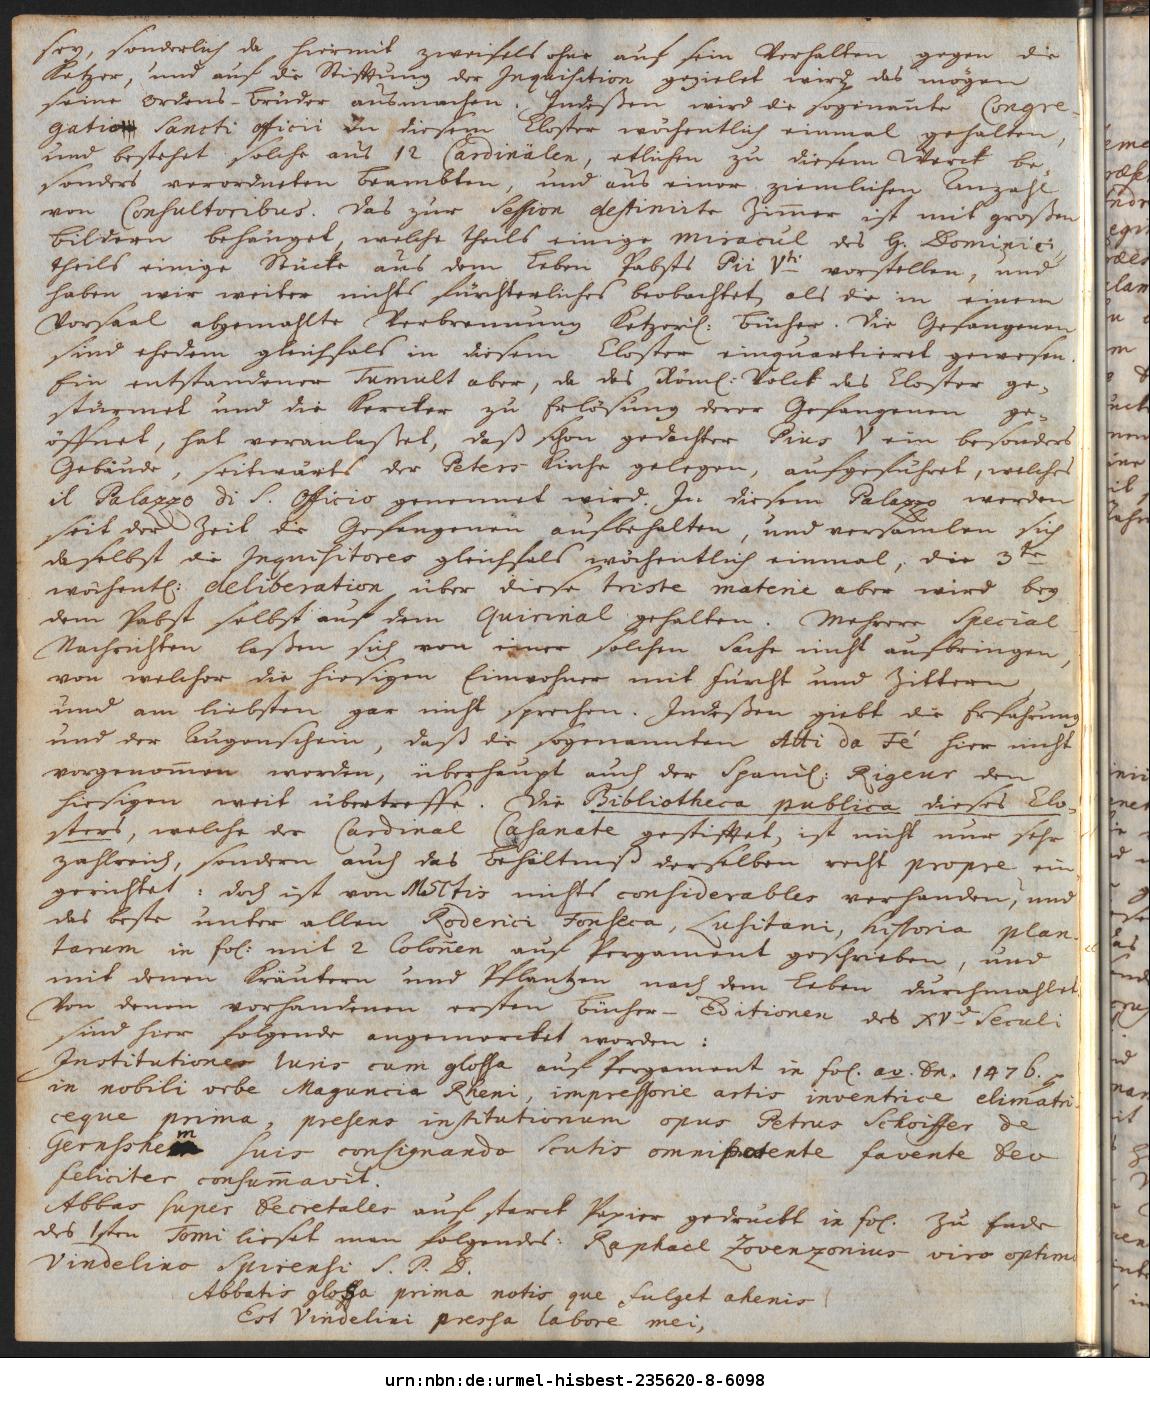 sey, sonderlich da hiermit zweifels ohne auf sein Verhalten gegen die
Ketzer, und auf die Stifftung der Inquisition gezielet wird das mögen
seine Ordens-Brüder ausmachen. Indeßen wird die sogenañte Congre-
gation Sancti officii in diesem Closter wöchentlich einmal gehalten,
und bestehet solche aus 12 Cardinälen, etlichen zu diesem Werck be-
sonders verordneten Beambten, und aus einer ziemlichen Anzahl
von Consultoribus. Das zur Session destinirte Zim̃er ist mit großen
Bildern behänget, welche theils einige miracul des H. Dominici,
theils einige Stücke aus dem Leben Pabsts Pii Vti vorstellen, und
haben wir weiter nichts fürchterliches beobachtet, als die in einem
Vorsaal abgemahlte Verbrennung Ketzerl: Bücher. Die Gefangenen
sind ehedem gleichfals in diesem Closter einquartieret gewesen.
Ein entstandener Tumult aber, da das Röml: Volck das Closter ge-
stürmet und die Kercker zu Erlösung derer Gefangenen ge-
öffnet, hat veranlaßet, daß schon gedachter Pius V ein besonders
Gebäude, seitwärts der Peters Kirche gelegen, aufgeführet, welches
il Palazzo di S. Officio genennet wird. In diesem Palazzo werden
seit der Zeit die Gefangenen aufbehalten, und versam̃len sich
daselbst die Inquisitores gleichfals wöchentlich einmal, die 3te
wöchentl: deliberation über diese triste materie aber wird bey
dem Pabst selbst auf dem Quirinal gehalten. Mehrere Special
Nachrichten laßen sich von einer solchen Sache nicht aufbringen,
von welcher die hiesigen Einwohner mit Furcht und Zittern,
und am liebsten gar nicht sprechen. Indeßen giebt die Erfahrung
und der Augenschein, daß die sogenannten Atti da Fé hier nicht
vorgenom̃en werden, überhaupt auch der Spanil: Rigeur den
hiesigen weit übertreffe. Die Bibliotheca publica dieses Clo-
sters, welche der Cardinal Casanate gestifftet, ist nicht nur sehr
zahlreich, sondern auch das Behältniß derselben recht propre ein-
gerichtet: doch ist von MSCtis nichts considerables verhanden, und
das beste unter allen Roderici Fonseca, Lusitani, historia plan-
tarum in fol: mit 2 Colon̄en auf Pergament geschrieben, und
mit denen Kräutern und Pflantzen nach dem Leben durchmahlet.
Von denen vorhandenen ersten Bücher-Editionen des XVd Seculi
sind hier folgende angemercket worden:
Institutiones Iuris cum glossa auf Pergament in fol. 1476.
in nobili urbe Maguncia Rheni, impressorie artis inventrice elimatri-
ceque prima, presens institutionum opus Petrus Schoiffer de
Gernsshem suis consignando scutis omnipotente favente Deo
feliciter consum̄avit.
Abbas super Decretales auf starck Papier gedruckt in fol. Zu Ende
des 1sten Tomi lieset man folgendes: Raphael Zovenzonius viro optimo
Vindelino Spirensi S. P. D.
Abbatis glossa prima notis que fulget ahenis
Est Vindelini pressa labore mei,
urn:nbn:de:urmel-hisbest-235620-8-6098